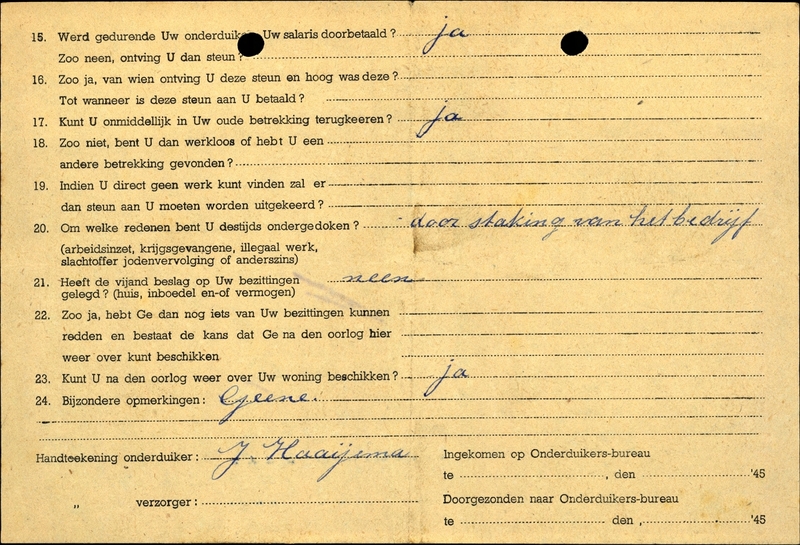 15. Werd gedurende Uw onderduik Uw salaris doorbetaald? ja
Zoo neen, ontving U dan steun?
16. Zoo ja, van wien ontving U deze steun en hoog was deze?
Tot wanneer is deze steun aan U betaald?
17. Kunt U onmiddellijk in Uw oude betrekking terugkeeren? ja
18. Zoo niet, bent U dan werkloos of hebt U een
andere betrekking gevonden?
19. Indien U direct geen werk kunt vinden zal er
dan steun aan U moeten worden uitgekeerd?
20. Om welke redenen bent U destijds ondergedoken? door staking van het bedrijf
(arbeidsinzet, krijgsgevangene, illegaal werk,
slachtoffer jodenvervolging of anderszins)
21. Heeft de vijand beslag op Uw bezittingen neen
gelegd? (huis, inboedel en-of vermogen)
22. Zoo ja, hebt Ge dan nog iets van Uw bezittingen kunnen
redden en bestaat de kans dat Ge na den oorlog hier
weer over kunt beschikken
23. Kunt U na den oorlog weer over Uw woning beschikken? ja
24. Bijzondere opmerkingen: Geene.
Handteekening onderduiker: J. Haaijema
Ingekomen op Onderduikers-bureau
te , den '45
„ verzorger:
Doorgezonden naar Onderduikers-bureau
te den , '45